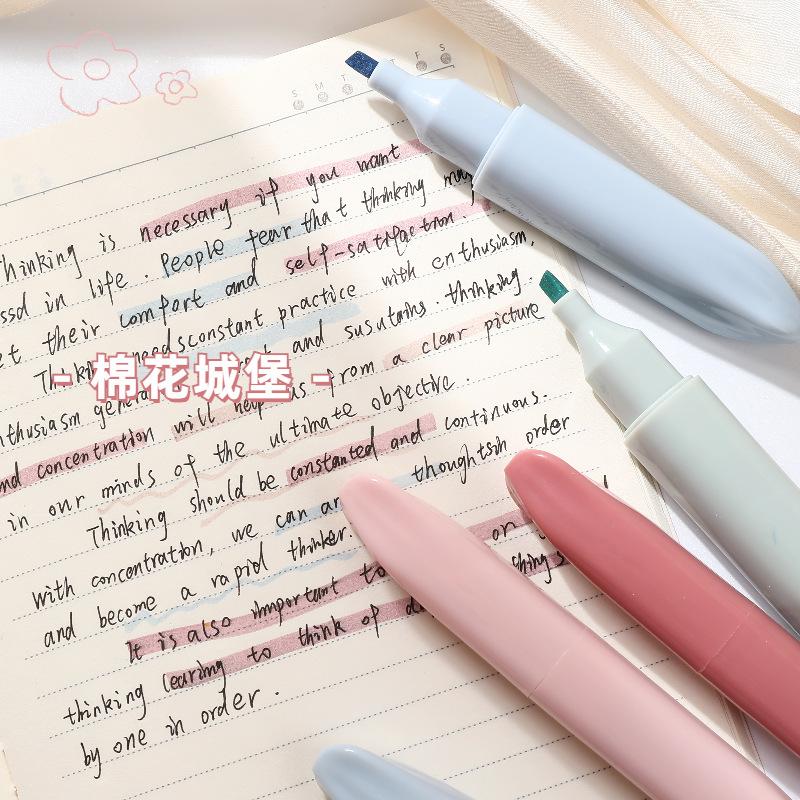 S M T F S
thinking is necessary if you want
ssd in life. People fear that thinking may
et their comfort and self-satifaction
Thinking needs constant practice with enthusiasm,
and sustains thinking.
- 棉花城堡 -
nthusiasm general will help us from a clear picture
nd concentration of the ultimate objective.
in our minds should be constanted and continuous.
Thinking we can thoughtsin order
with concentration, thinker. on
and become a rapid to things
It is also important
thinking learing to think of
by one in order.